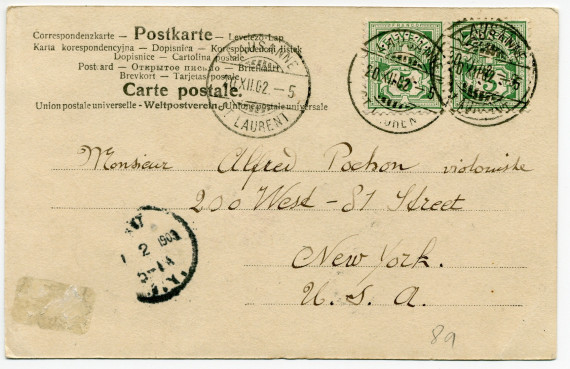 Correspondenzkarte — Postkarte — Levelező-Lap
Karta korespondencyjna — Dopisnica — Korespondenční lístek
Dopisnice — Cartolina postale
Post card — Открытое письмо — Briefkaart
Brevkort — Tarjetas postales
Carte postale.
Union postale universelle - Weltpostverein - Unione postale universale
LAUSANNE
20.XII.02.—5
ST LAURENT
LAUSANNE
20.XII.02.—5
LAURENT
LAUSANNE
FRANCO
5
Monsieur Alfred Pochon violoniste
200 West - 81 Street
New York.
U. S. A.
2 1903
5-1A
N.Y.
89